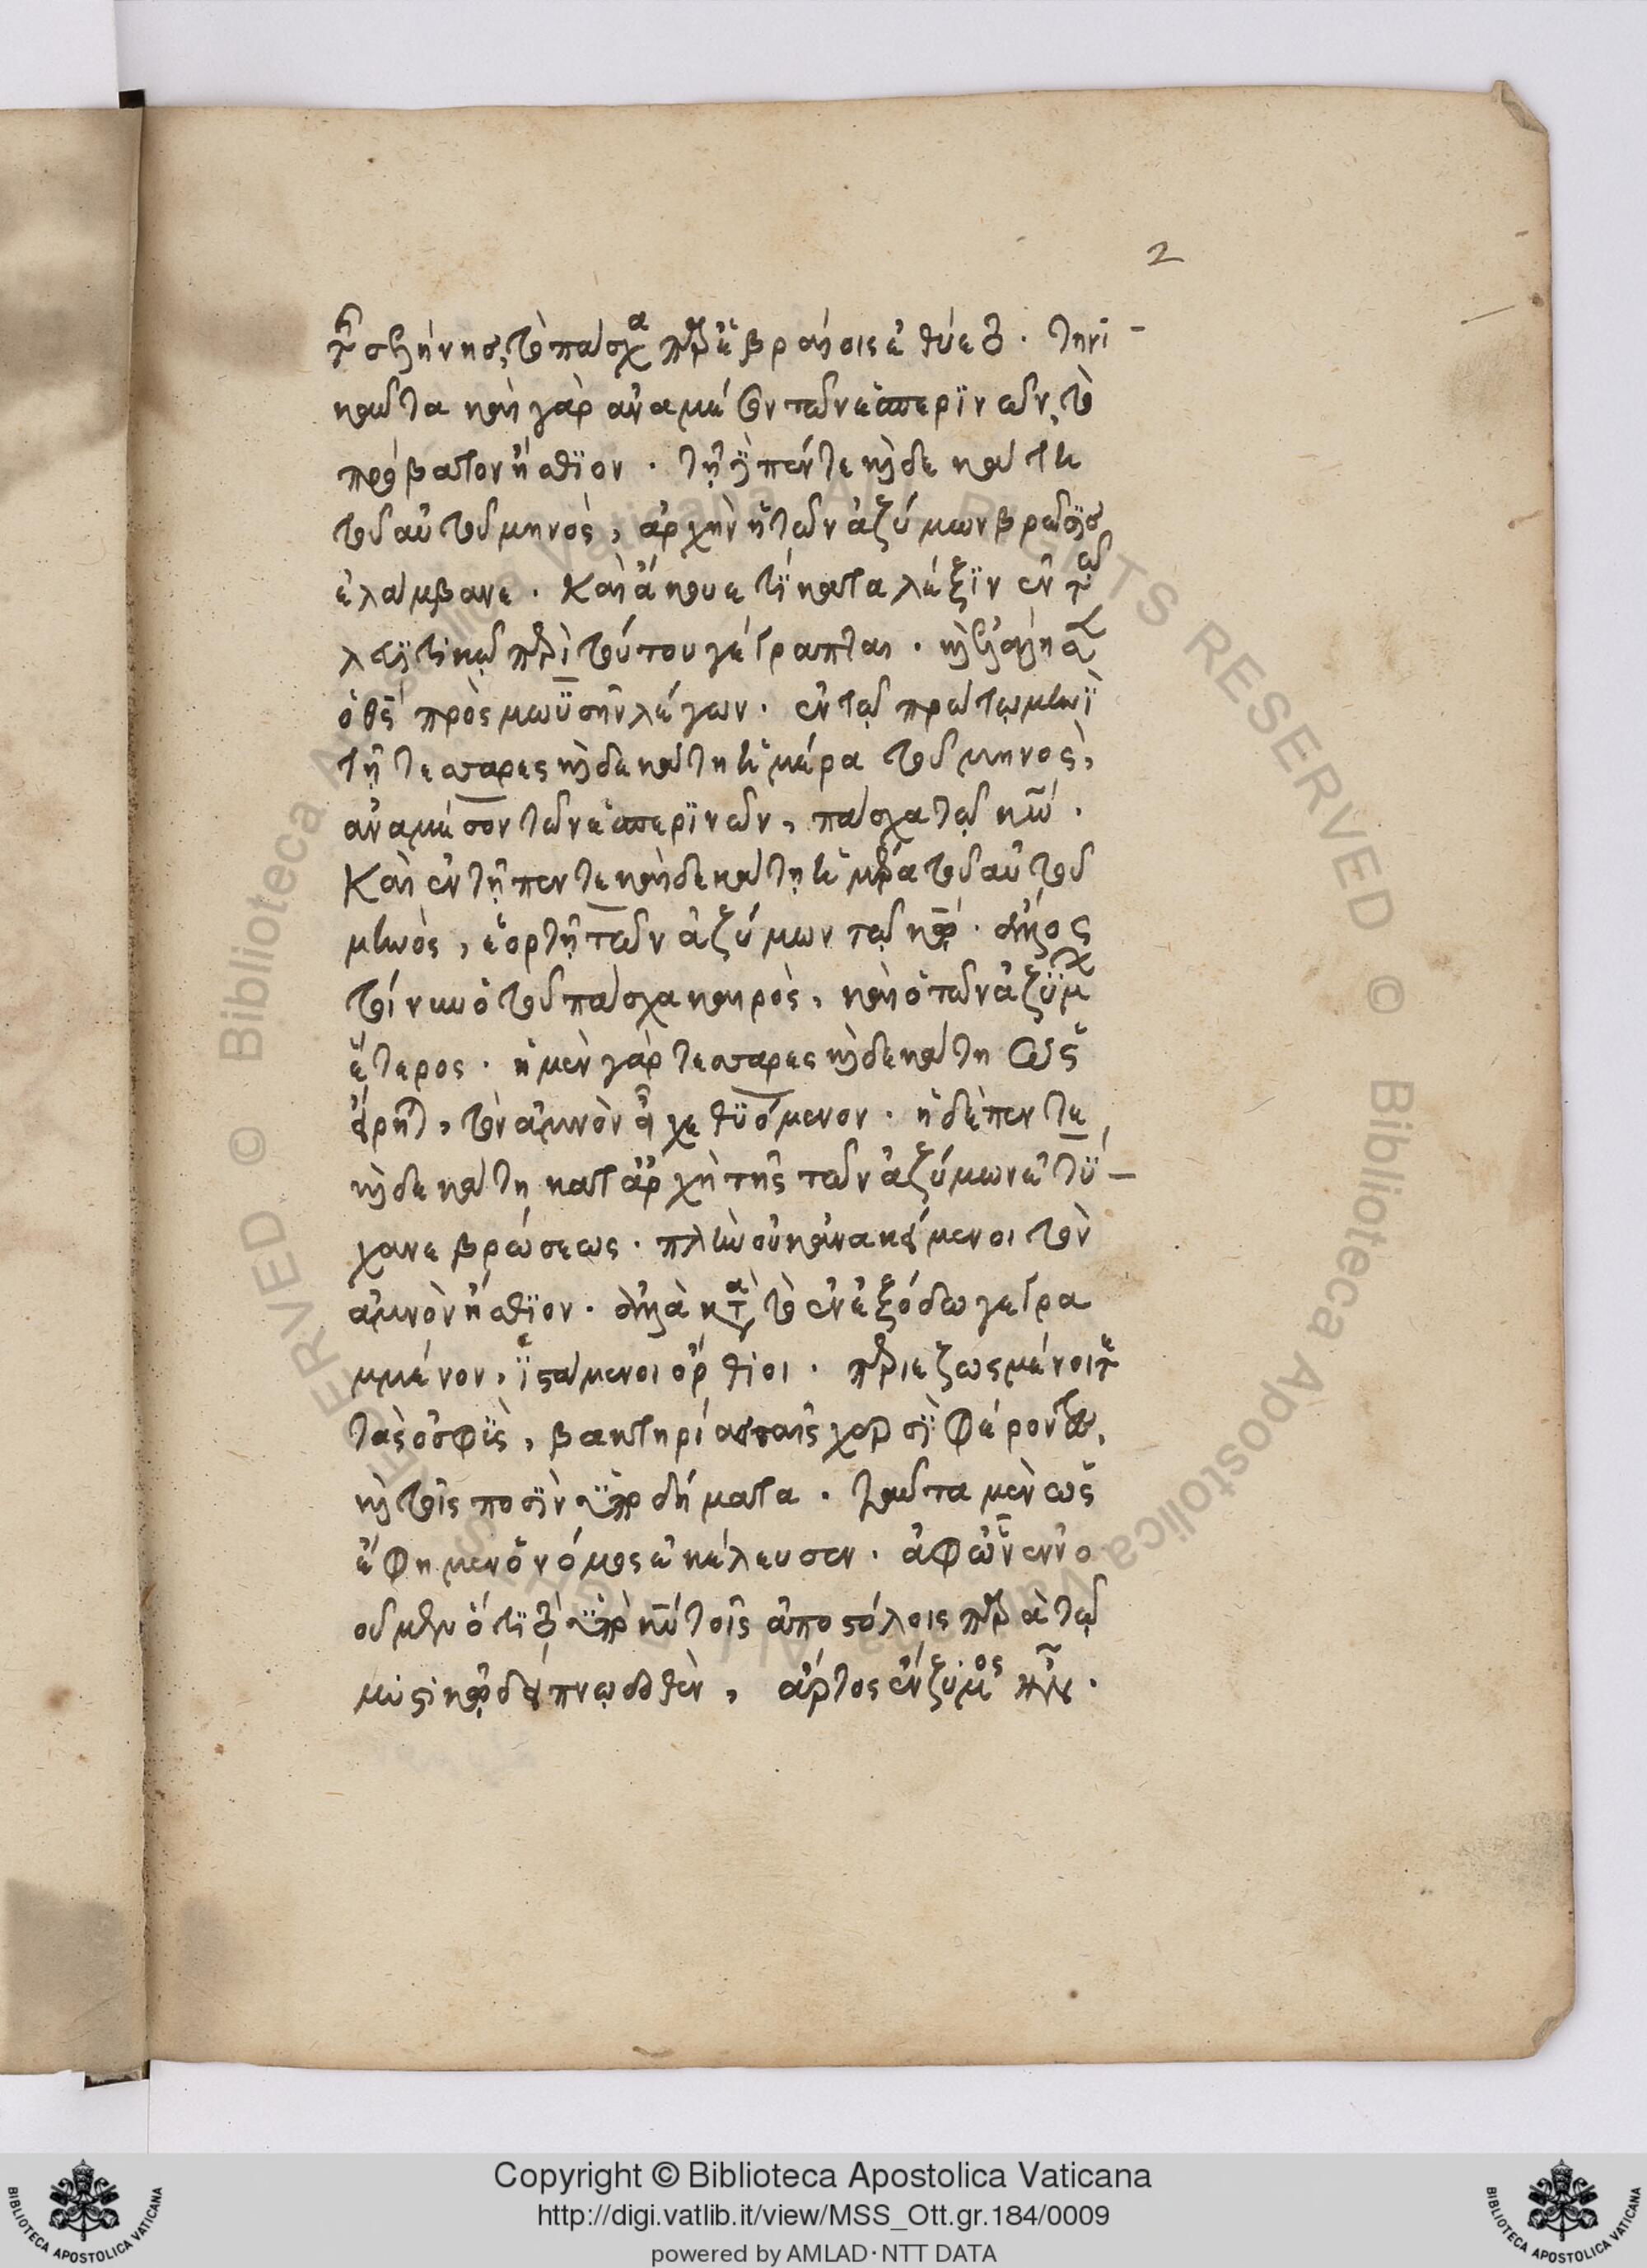 2
τῆς σελήνης, τὸ πάσχα παρ' ἑβραίοις ἐθύετο. τηνι-
καῦτα καὶ γὰρ αναμέσον τῶν ἑσπερϊνῶν, τὸ
πρόβατον ἤσθϊον. τῇ δὲ πέντε καὶ δεκάτη
τοῦ αὐτοῦ μηνὸς, ἀρχὴν ἡ τῶν ἀζύμων βρῶσις
ἐλάμβανε. Καὶ ἄκουε τί κατα λέξϊν ἐν τῶ
λευϊτικῷ περὶ τούτου γέγραπται. καὶ ἐλάλησεν
ὁ θς πρὸς μωϋσῆν λέγων. ἐν τῷ πρώτῳ μηνῒ
τῇ τεσσαρες καὶ δεκάτη ἡμέρα τοῦ μηνὸς,
αναμέσον τῶν ἑσπερϊνῶν, πάσχα τῷ κω.
Καὶ ἐν τῇ πεντε καὶ δεκάτῃ ἡμέρα τοῦ αὐτοῦ
μηνὸς, ἑορτὴ τῶν ἀζύμων τῷ κω. ἄλλος
τοίνυν ὁ τοῦ πάσχα καιρὸς, καὶ ὁ τῶν ἀζύμων
ἕτερος. ἡ μὲν γὰρ τεσσαρες καὶ δεκάτη ὡς
εἴρηται, τὸν ἀμνὸν εἶχε θϋόμενον. ἡ δὲ πεντε
καὶ δεκάτη καταρχὴ τῆς τῶν ἀζύμων ἐτύ-
χανε βρώσεως. πλὴν οὐκ ἀνακείμενοι τὸν
ἀμνὸν ἤσθϊον. ἀλλὰ κατὰ τὸ ἐν ἐξόδω γεγρα
μμένον, ϊστάμενοι ὄρθιοι. περιεζωσμένοι
τὰς ὀσφῒς, βακτηρίας ταῖς χερσῒ φέροντες,
καὶ τοῖς ποσῒν ὑποδήματα. ταῦτα μὲν ὡς
ἔφημεν ὁ νόμος ἐκέλευσεν. ἀφ' ὧν ἐννο
οῦμεν ὅτι τὸ ὑπὸ κυ τοῖς ἀποστόλοις παρὰ τῷ
μυστικῷ δείπνῳ δοθὲν, ἄρτος ἔνζυμος ἦν.
Copyright © Biblioteca Apostolica Vaticana
http://digi.vatlib.it/view/MSS_Ott.gr.184/0009
powered by AMLAD·NTT DATA
BIBLIOTECA APOSTOLICA VATICANA
BIBLIOTECA APOSTOLICA VATICANA